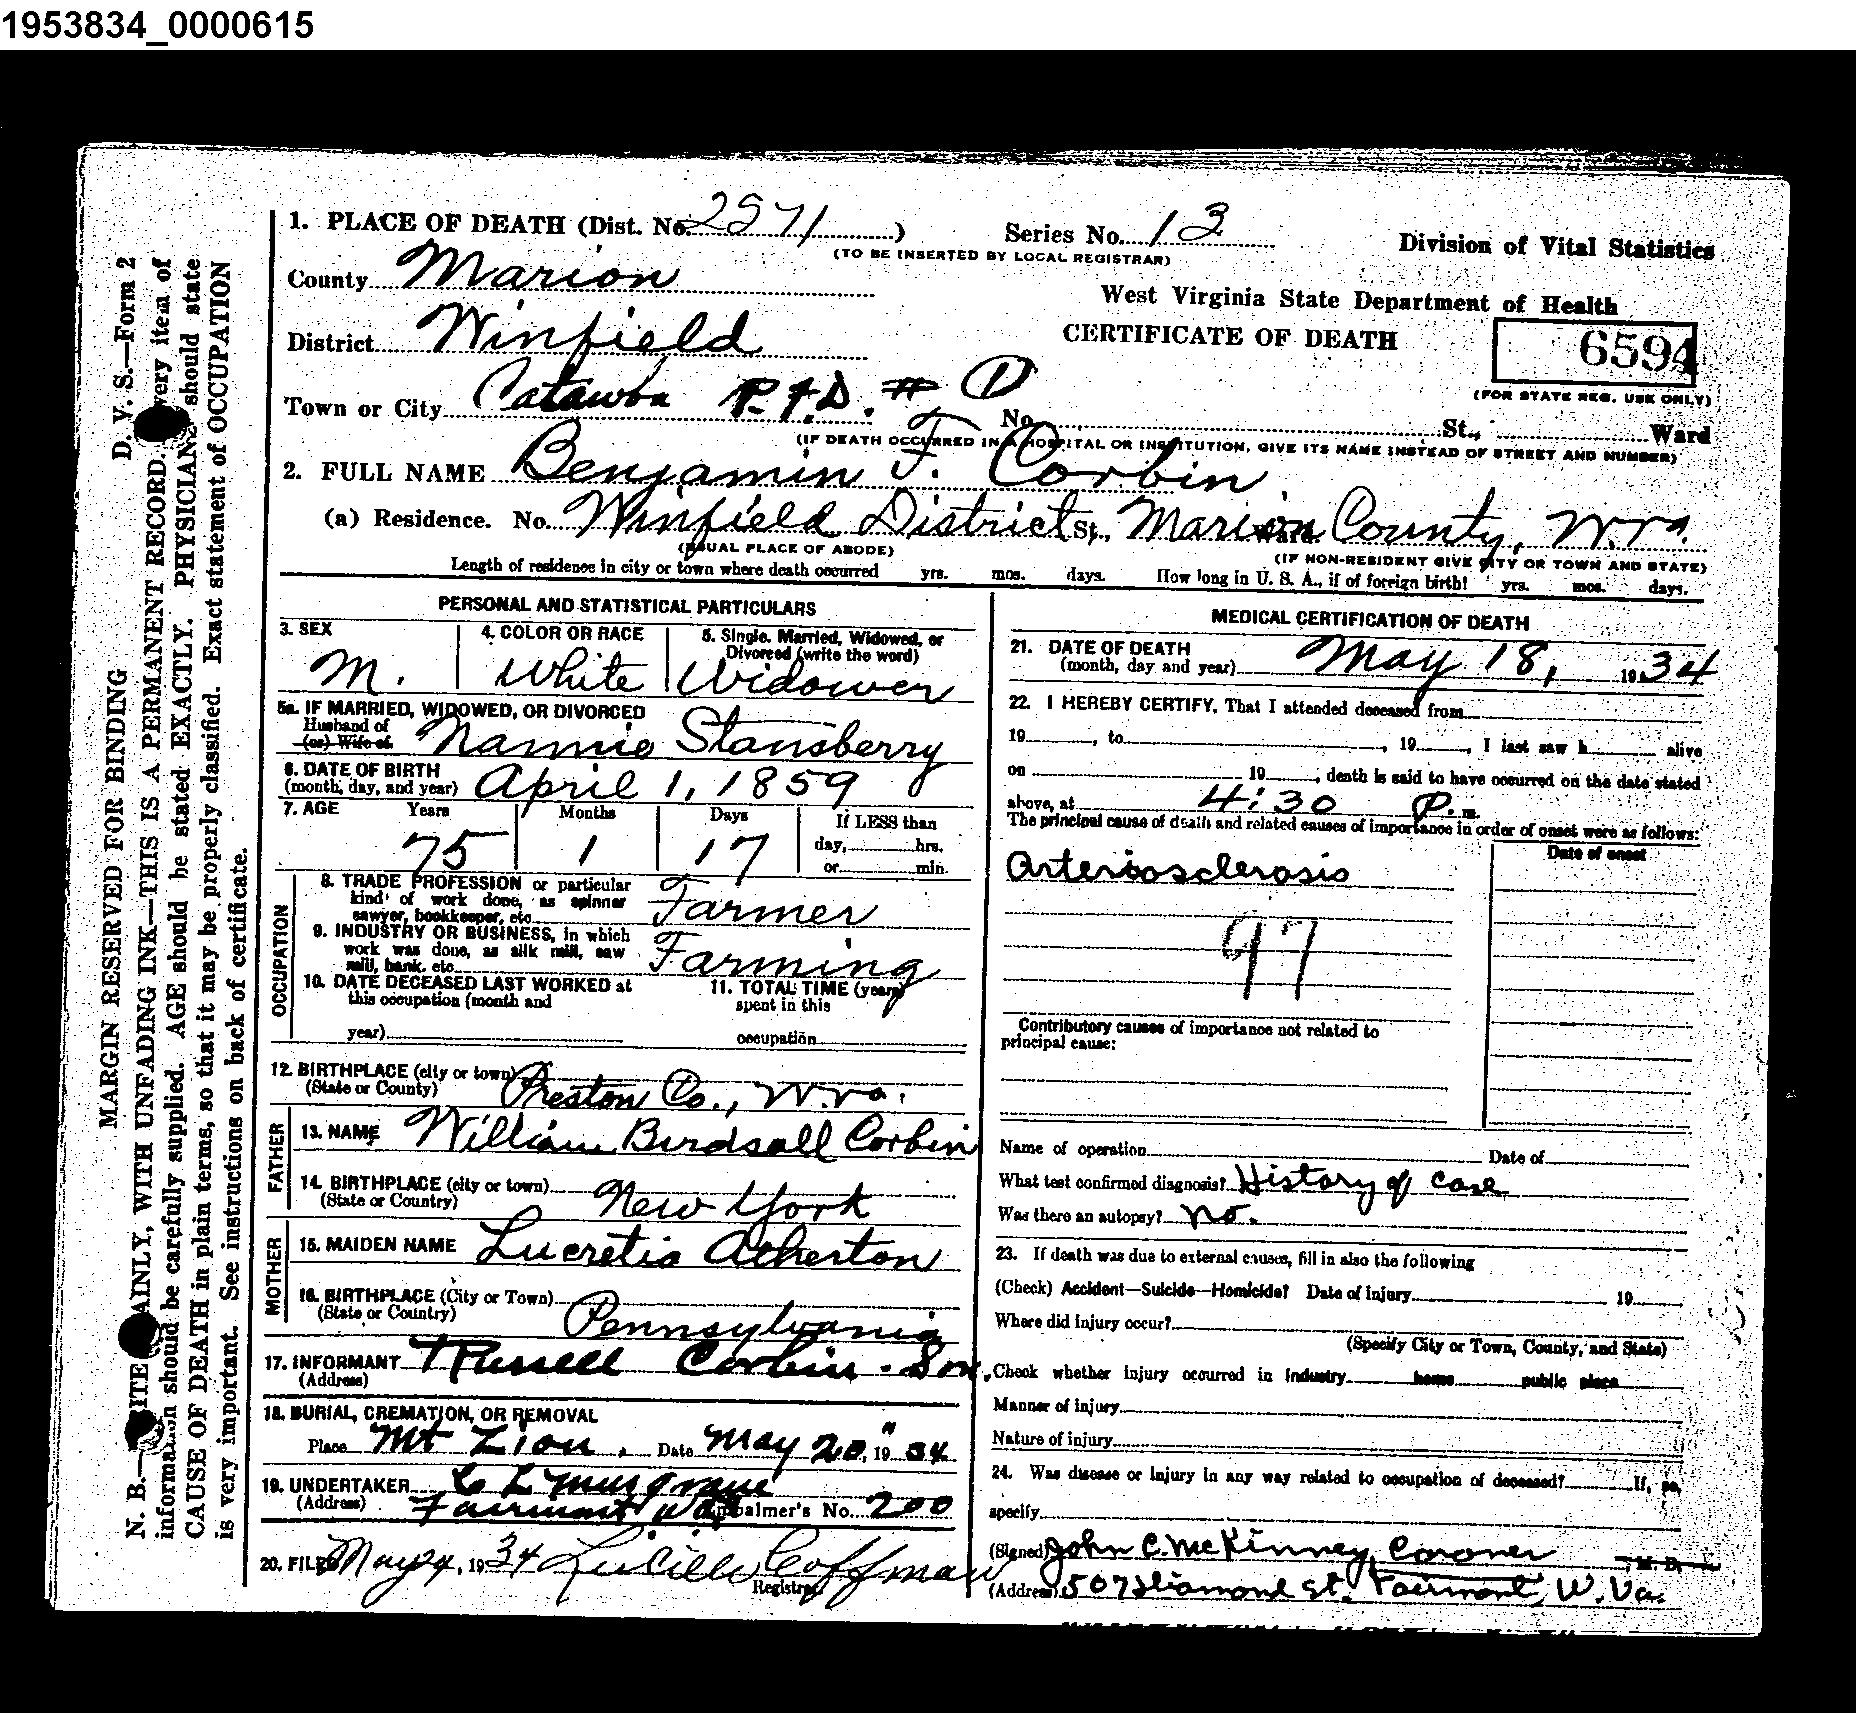 1953834_0000615
D. V. S.—Form 2
MARGIN RESERVED FOR BINDING
N. B.—WRITE PLAINLY, WITH UNFADING INK—THIS IS A PERMANENT RECORD. Every item of
information should be carefully supplied. AGE should be stated EXACTLY. PHYSICIANS should state
CAUSE OF DEATH in plain terms, so that it may be properly classified. Exact statement of OCCUPATION
is very important. See instructions on back of certificate.
1. PLACE OF DEATH (Dist. No. 2571)
Series No. 13
(TO BE INSERTED BY LOCAL REGISTRAR)
Division of Vital Statistics
County Marion
West Virginia State Department of Health
District Winfield
CERTIFICATE OF DEATH
6594
(FOR STATE REG. USE ONLY)
Town or City Catawba R.F.D. # 1
No. St., Ward
(IF DEATH OCCURRED IN A HOSPITAL OR INSTITUTION, GIVE ITS NAME INSTEAD OF STREET AND NUMBER)
2. FULL NAME Benjamin F. Corbin
(a) Residence. No. Winfield District St., Marion County, W.Va.
(USUAL PLACE OF ABODE)
(IF NON-RESIDENT GIVE CITY OR TOWN AND STATE)
Length of residence in city or town where death occurred yrs. mos. days. How long in U. S. A., if of foreign birth? yrs. mos. days.
PERSONAL AND STATISTICAL PARTICULARS
3. SEX
M.
4. COLOR OR RACE
White
5. Single, Married, Widowed, or
Divorced (write the word)
Widower
5a. IF MARRIED, WIDOWED, OR DIVORCED
Husband of
(or) Wife of
Nannie Stansberry
6. DATE OF BIRTH
(month, day, and year) April 1, 1859
7. AGE Years Months Days
75 1 17
If LESS than
day, hrs.
or min.
OCCUPATION
8. TRADE PROFESSION or particular
kind of work done, as spinner
sawyer, bookkeeper, etc. Farmer
9. INDUSTRY OR BUSINESS, in which
work was done, as silk mill, saw
mill, bank, etc. Farming
10. DATE DECEASED LAST WORKED at
this occupation (month and
year)
11. TOTAL TIME (years)
spent in this
occupation
12. BIRTHPLACE (city or town)
(State or County) Preston Co., W.Va.
FATHER
13. NAME William Birdsall Corbin
14. BIRTHPLACE (city or town)
(State or Country) New York
MOTHER
15. MAIDEN NAME Lucretia Atherton
16. BIRTHPLACE (City or Town)
(State or Country) Pennsylvania
17. INFORMANT Russell Corbin - Son.
(Address)
18. BURIAL, CREMATION, OR REMOVAL
Place Mt Zion, Date May 20, 1934
19. UNDERTAKER C L Musgrave
(Address) Fairmont W Va Embalmer's No. 200
20. FILED May 24, 1934 Lucille Coffman
Registrar
MEDICAL CERTIFICATION OF DEATH
21. DATE OF DEATH
(month, day and year) May 18, 1934
22. I HEREBY CERTIFY, That I attended deceased from
19 , to , 19 , I last saw h alive
on 19 , death is said to have occurred on the date stated
above, at 4:30 P. m.
The principal cause of death and related causes of importance in order of onset were as follows:
Date of onset
Arteriosclerosis
97
Contributory causes of importance not related to
principal cause:
Name of operation Date of
What test confirmed diagnosis? History of case
Was there an autopsy? no.
23. If death was due to external causes, fill in also the following
(Check) Accident—Suicide—Homicide? Date of injury 19
Where did injury occur?
(Specify City or Town, County, and State)
Check whether injury occurred in Industry home public place
Manner of injury
Nature of injury
24. Was disease or injury in any way related to occupation of deceased? If, so,
specify
(Signed) John C. McKinney, Coroner M. D.
(Address) 507 Diamond St. Fairmont, W. Va.